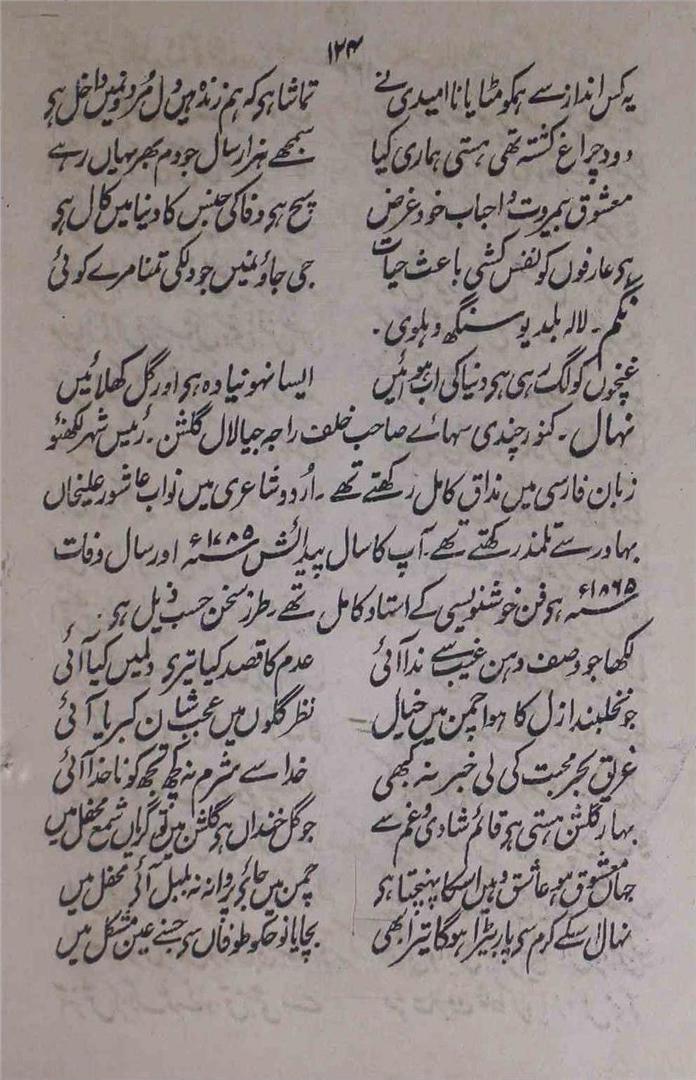 ۱۲۴
یہ کس انداز سے ہمکو مٹایا نا امیدی نے تماشا ہو کہ ہم زندہ ہیں دل مُردونمیں داخل ہو
دودِ چراغ کشتہ تھی ہستی ہماری کیا سمجھے ہزار سال جو دم بھر یہاں رہے
معشوق بیمروت و احباب خود غرض سچ ہو وفا کی جنس کا دنیا میں کال ہو
ہو عارفوں کو نفس کشی باعث حیات جی جاؤنمیں جو دلکی تمنا مرے کوئی
نگم۔ لالہ بلدیو سنگھ دہلوی۔
غنچوں کو لگ رہی ہو دنیا کی اب ہوائیں ایسا نہو نیا وہ ہو اور گل کھلائیں
نہال۔ کنور چندی سہائے صاحب خلف راجہ جیالال گلشن۔ رئیس شہر لکھنؤ
زبان فارسی میں مذاق کامل رکھتے تھے۔ اُردو شاعری میں نواب عاشور علیخاں
بہادر سے تلمذ رکھتے تھے۔ آپ کا سال پیدائش سنہ ۱۷۸۵ء اور سال وفات
سنہ ۱۸۶۵ء ہو فن خوشنویسی کے استاد کامل تھے۔ طرز سخن حسب ذیل ہو۔
لکھا جو وصف دہن غیب سے ندا آئی عدم کا قصد کیا تیری دلمیں کیا آئی
جو نخلبند ازل کا ہوا چمن میں خیال نظر گلوں میں عجب شان کبریا آئی
غریق بحر محبت کی لی خبر نہ کبھی خدا سے شرم نہ کچھ تجھ کو ناخدا آئی
بہار گلشن ہستی ہو قائم شادی و غم سے جو گل خنداں ہو گلشن میں تو گریاں شمع محفل میں
جہاں معشوق ہو عاشق وہیں اسکا پہنچتا ہو چمن میں جائے پروانہ نہ بلبل آئے محفل میں
نہال اسکے کرم سو پار بیڑا ہوگا تیرا بھی بچایا نوح کو طوفاں سو جسنے عین مشکل میں